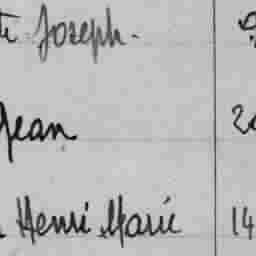 Joseph.
Jean
Henri Marie 14